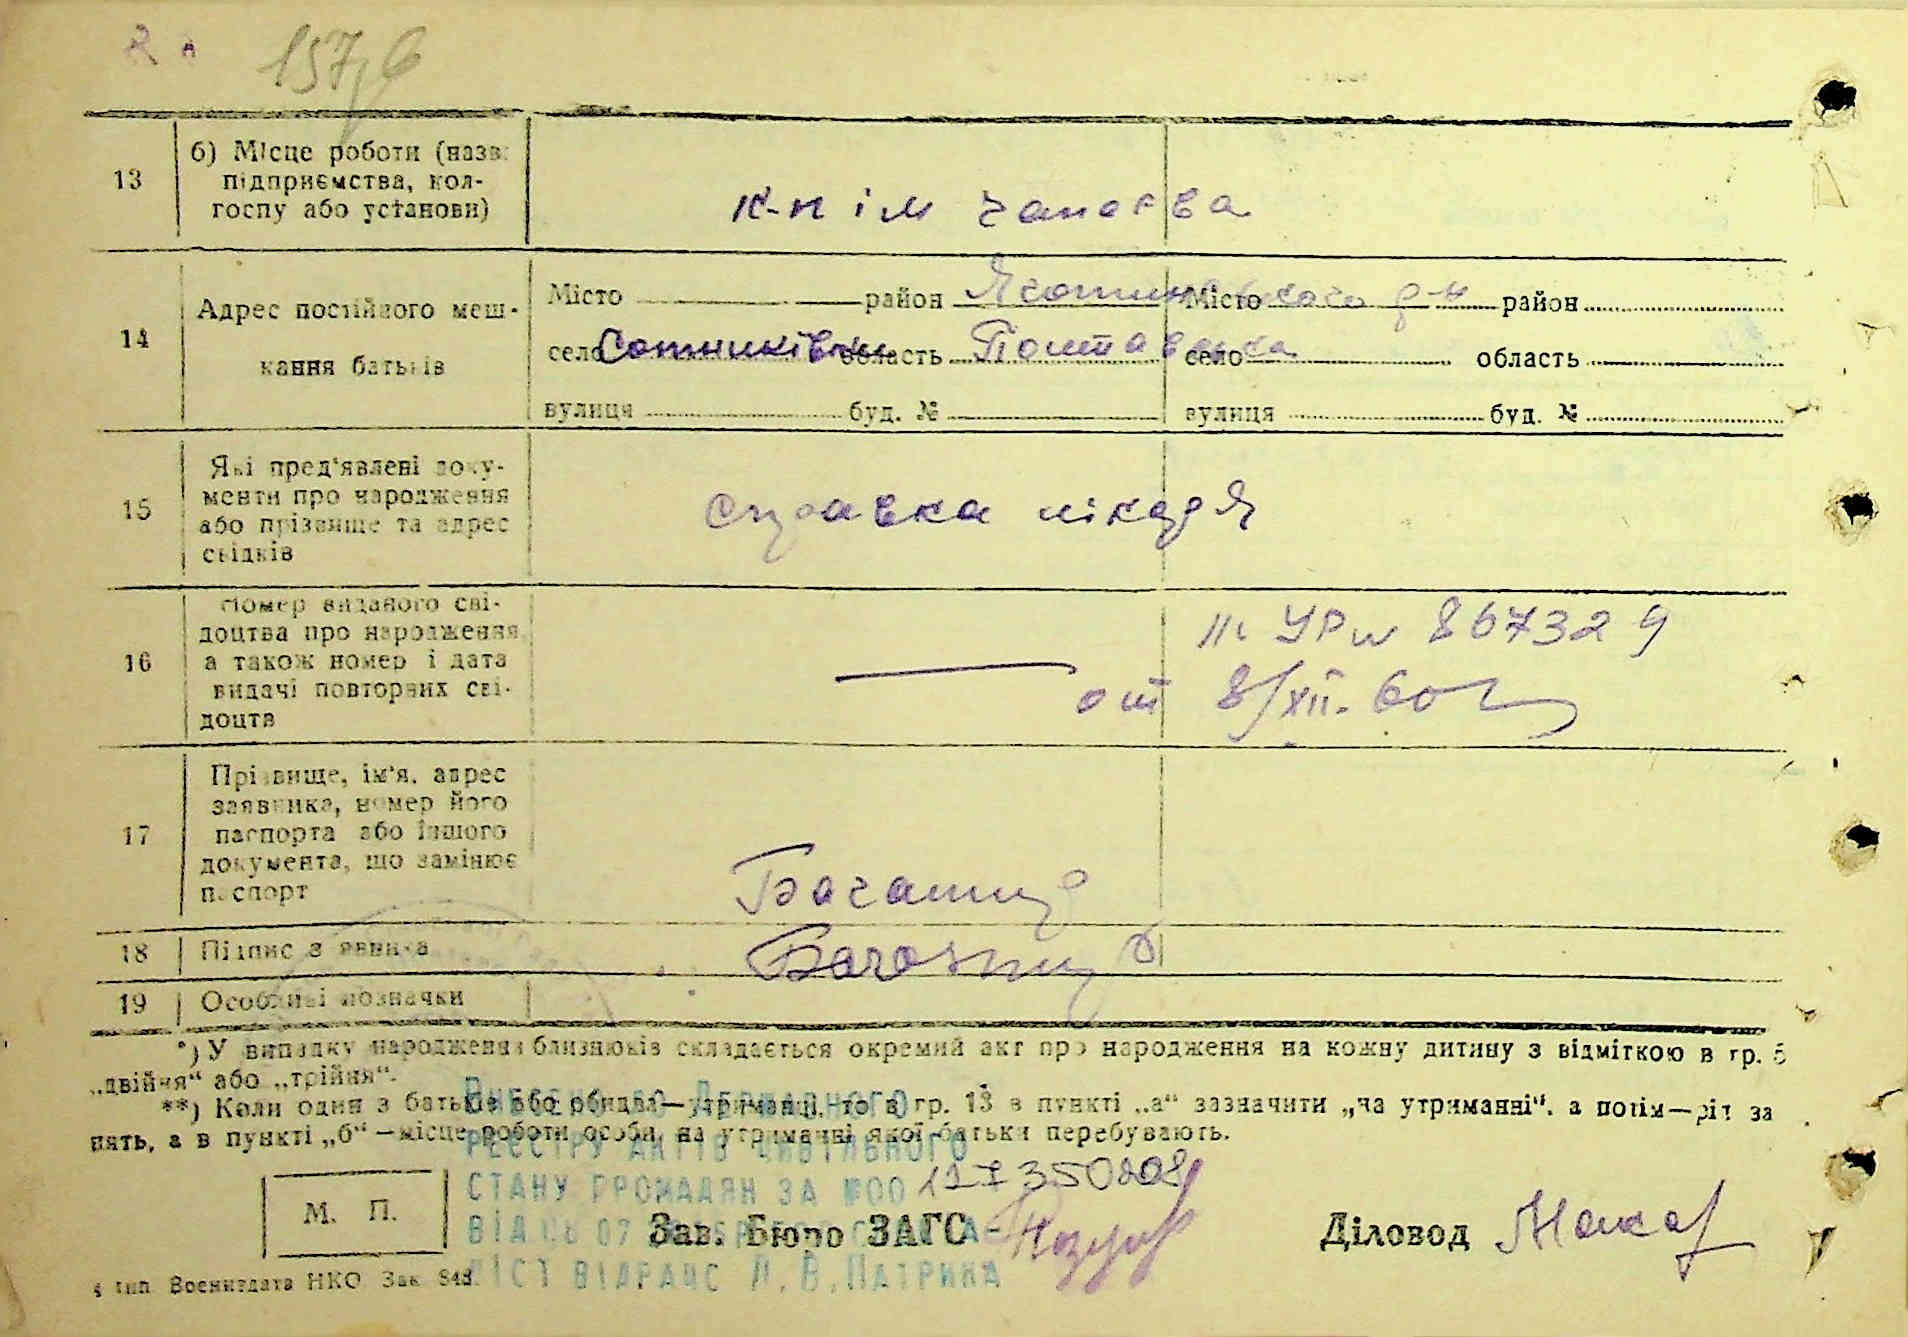 157,6
13
б) Місце роботи (назв
підприємства, кол-
госпу або установи)
к-п ім Чапаєва
14
Адрес постійного меш-
кання батьків
Місто район Яготинського р-н Місто район
село Сотниківка область Полтавська село область
вулиця буд. № вулиця буд. №
15
Які пред'явлені доку-
менти про народження
або прізвище та адрес
свідків
справка лікаря
16
Номер виданого сві-
доцтва про народження,
а також номер і дата
видачі повторних сві-
доцтв
867329
от 8/XII. 60 г
17
Прізвище, ім'я, адрес
заявника, номер його
паспорта або іншого
документа, що замінює
паспорт
18
Підпис заявника
19
Особливі позначки
*) У випадку народження близнюків складається окремий акт про народження на кожну дитину з відміткою в гр. 5
„двійня“ або „трійня“.
**) Коли один з батьків або обидва—утриманці, то в гр. 13 в пункті „а“ зазначити „на утриманні“, а потім—рід за
нять, а в пункті „б“—місце роботи особи, на утриманні якої батьки перебувають.
ВНЕСЕНО ДО ДЕРЖАВНОГО
РЕЄСТРУ АКТІВ ЦИВІЛЬНОГО
СТАНУ ГРОМАДЯН ЗА №00
М. П.
Зав. Бюро ЗАГС
Діловод Макар
ВІДРАЦС Л.В.ПАТРИКА
тип. Воениздата НКО Зак. 848.